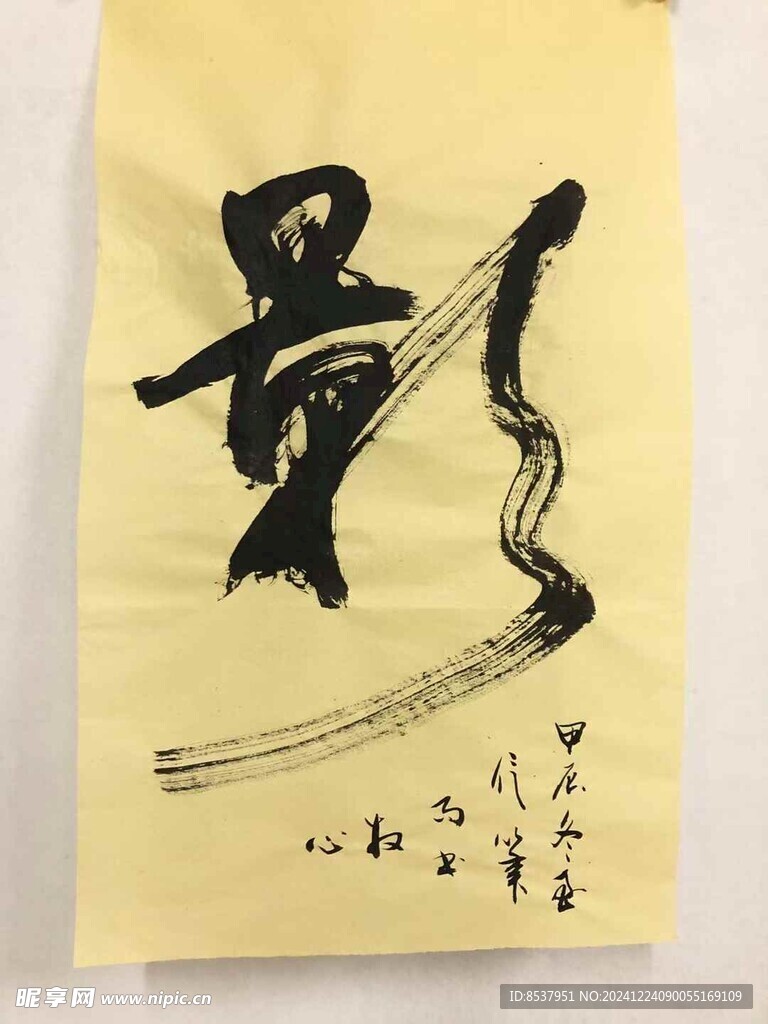 影
甲辰冬至
信笔
而书
散
心
昵享网 www.nipic.cn
ID:8537951 NO:20241224090055169109